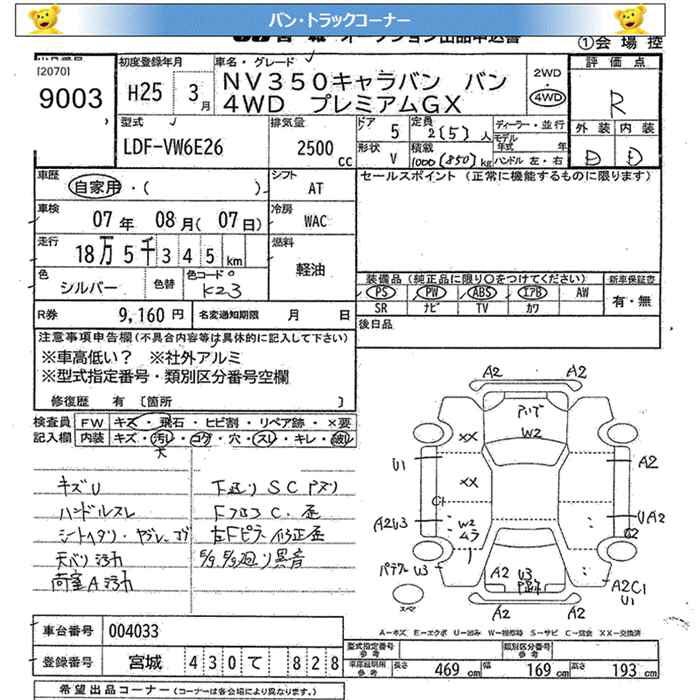 バン・トラックコーナー
オークション出品申込書
①会場控
120701
9003
初度登録年月
H25 3月
車名・グレード
NV350キャラバン バン
4WD プレミアムGX
2WD
4WD
評価点
R
外装 内装
D D
型式
LDF-VW6E26
排気量
2500 cc
ドア 5
定員 2(5)人
形状 V
積載 1000(850)kg
ディーラー・並行
モデル年式 年
ハンドル 左・右
車歴
自家用・( )
シフト AT
車検
07年 08月(07日)
冷房 WAC
走行
18万5千345km
燃料 軽油
色 シルバー
色替
色コード K23
R券 9,160円
名変通知期限 月 日
セールスポイント(正常に機能するものに限ります)
装備品(純正品に限り○をつけてください)
新車保証書
PS PW ABS エアB AW
SR ナビ TV カワ
有・無
後日品
注意事項申告欄(不具合内容等は具体的に記入して下さい)
※車高低い? ※社外アルミ
※型式指定番号・類別区分番号空欄
修復歴 有[箇所 ]
検査員記入欄
FW キズ・飛石・ヒビ割・リペア跡・×要
内装 キズ・汚レ・コゲ・穴・スレ・キレ・破レ
大
キズU
ハンドルスレ
シートヘタリ・ヤブレ、コゲ
天バリ汚れ
荷室A汚れ
下廻りSCアリ
左Fピラー修正歪
異音
A2 A2
W2
XX
XX
U1
A2
C1
A2U3
W2
ムラ
UA2
C2
U3
A2 U3
A2C1
U1
A2 A2
スペア
A-キズ E-エクボ U-凹み W-補修跡 S-サビ C-腐食 XX-交換済
車台番号 004033
登録番号 宮城 430 て 828
型式指定番号 参考
類別区分番号 参考
車庫証明用 参考 長さ 469cm 幅 169cm 高さ 193cm
希望出品コーナー(コーナーは各会場により異なります。)